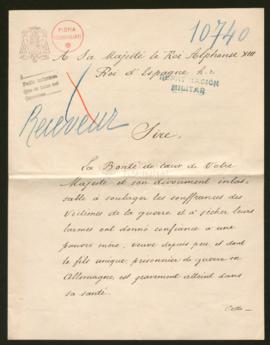 FICHA
10740
A Sa Majesté le Roi Alphonse XIII
Roi d'Espagne
MILITAR
Receveur
Sire,
La Bonté de cœur de Votre
Majesté et son dévouement inlas-
sable à soulager les souffrances des
victimes de la guerre et à sécher leurs
larmes ont donné confiance à une
pauvre mère, veuve depuis peu et dont
le fils unique, prisonnier de guerre en
Allemagne, est gravement atteint dans
sa santé.
Cette